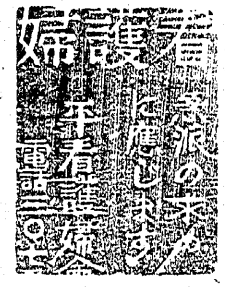 看護婦
急派の求め
に應じます
看護婦會
電話